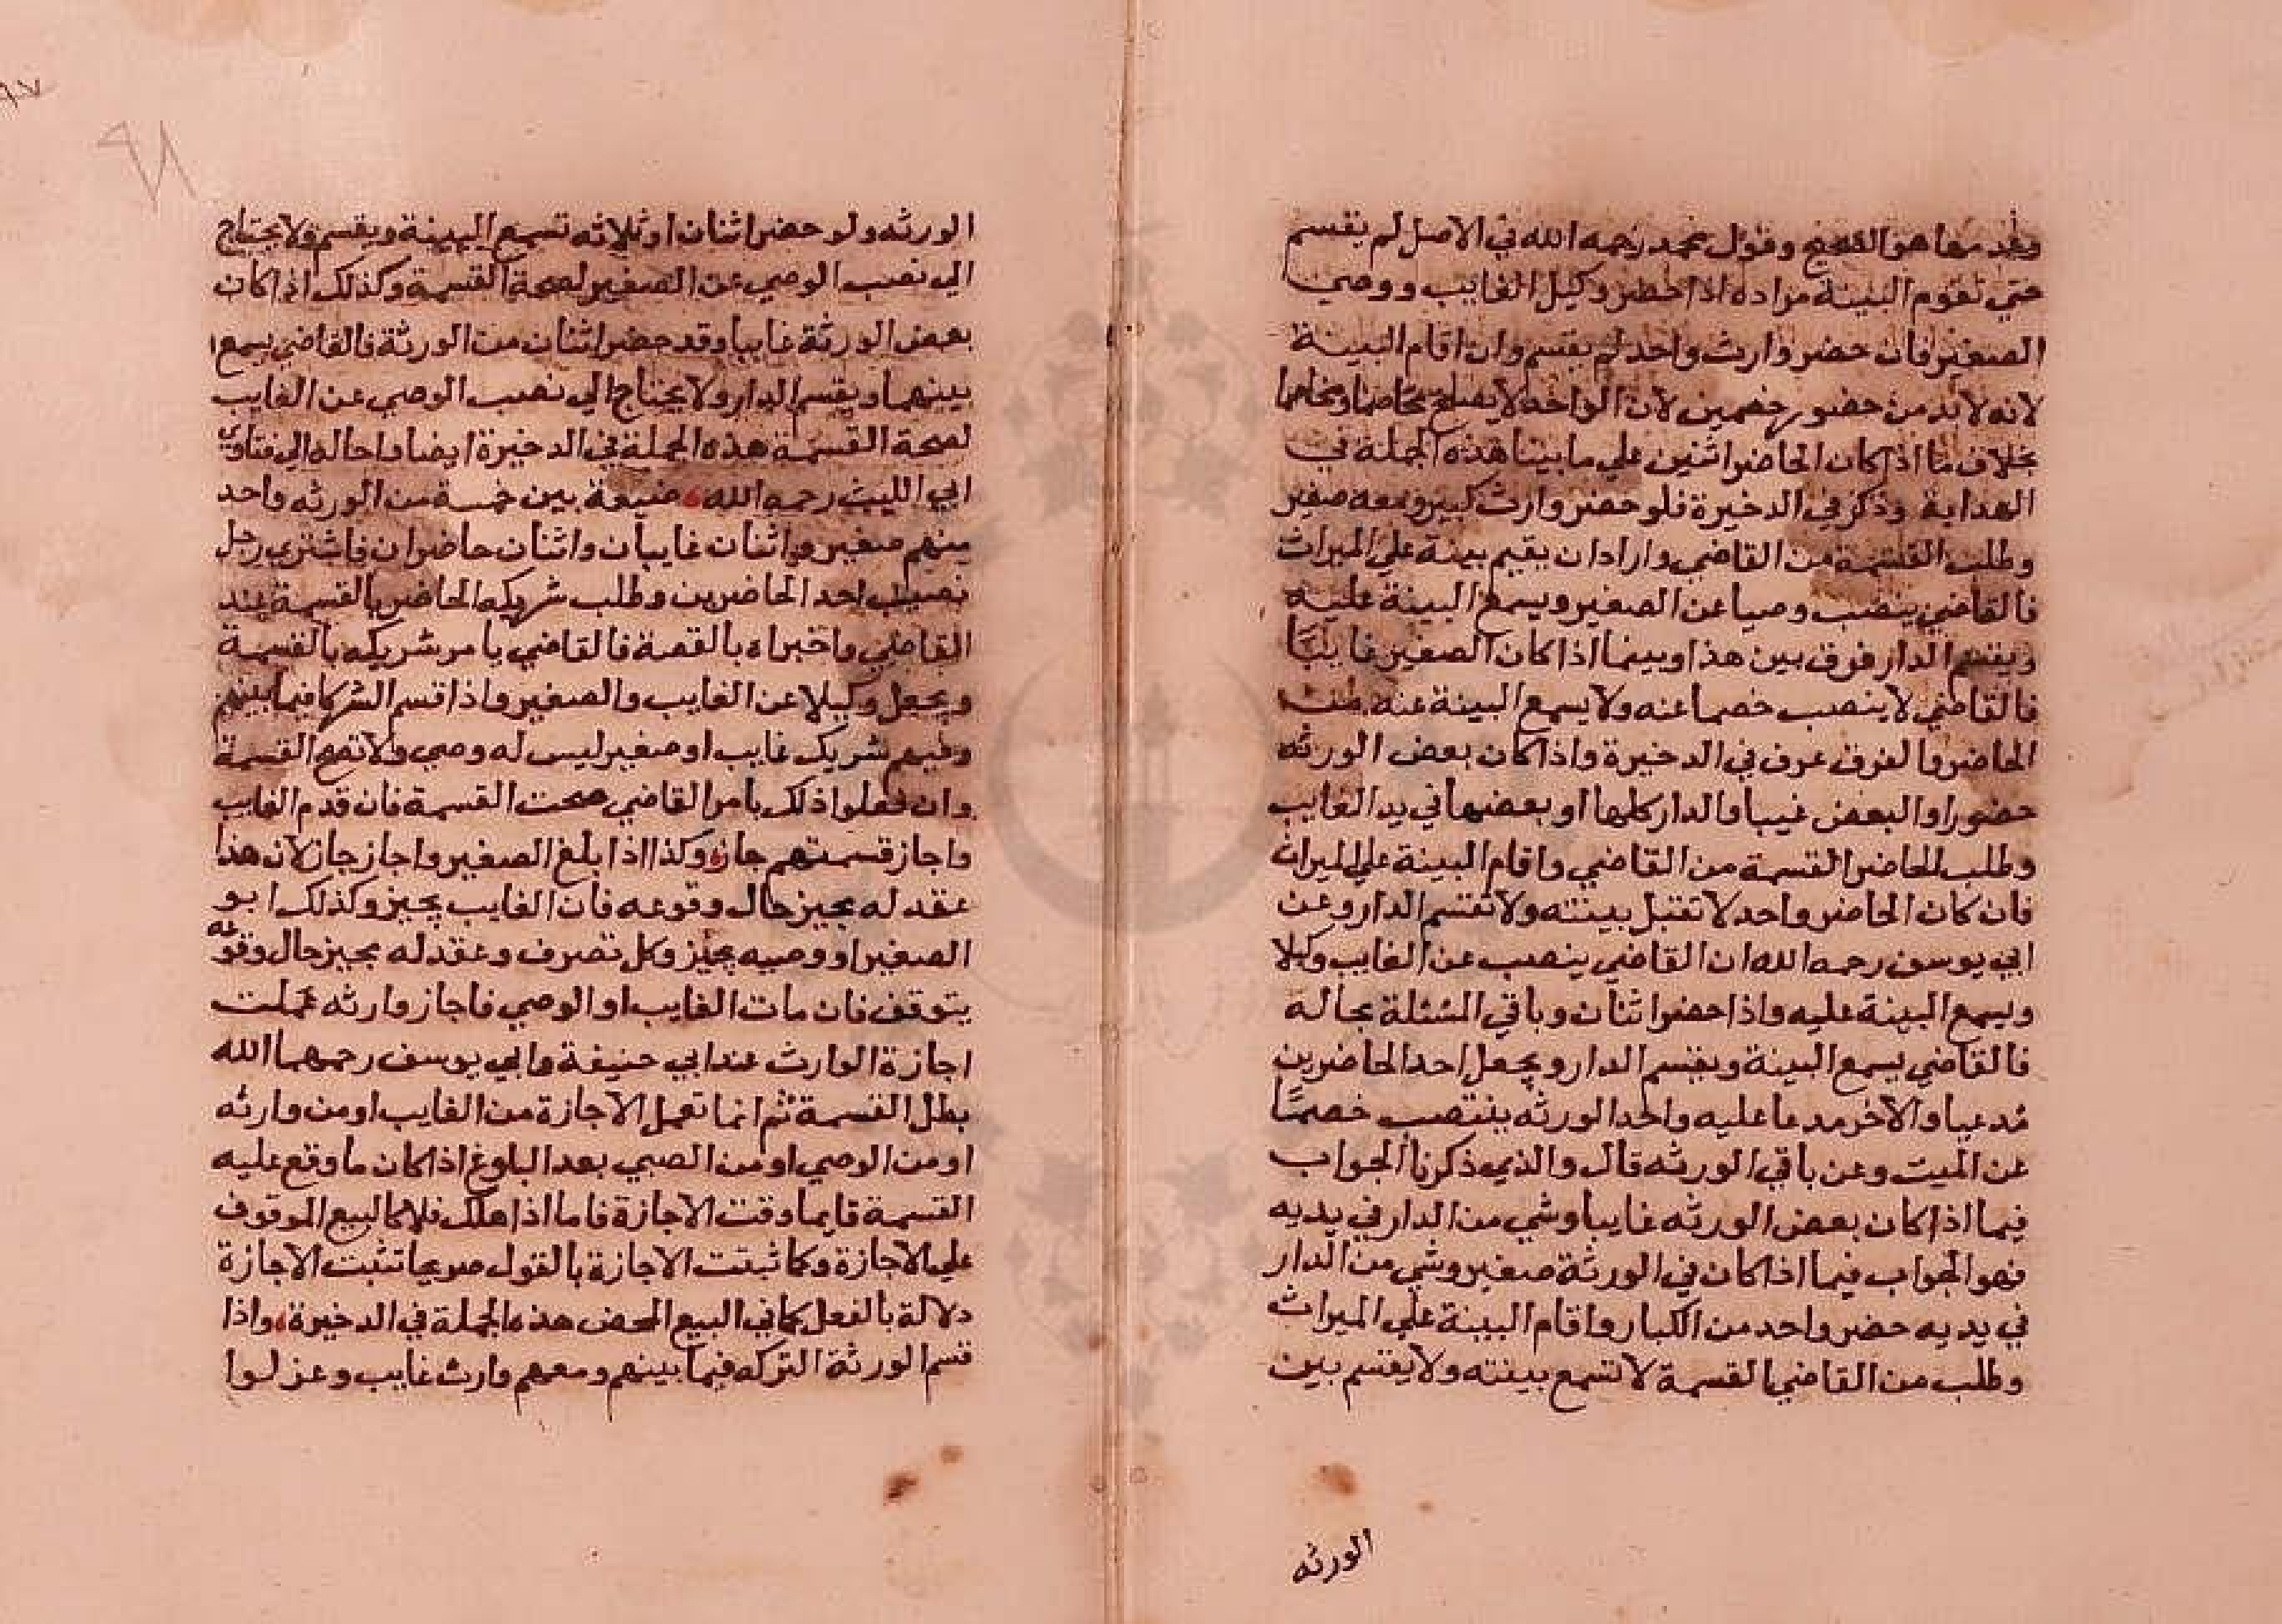 وقد معا هو الصحيح وقول محمد رحمه الله في الاصل لم يقسم
حتي تقوم البينة مراده اذا حضر وكيل الغايب ووصي
الصغير فان حضر وارث واحد لم يقسم وان اقام البينة
لانه لا بد من حضور خصمين لان الواحد لا يصلح مخاصما ومخاصما
بخلاف ما اذا كان الحاضر اثنين علي ما بينا هذه الجملة في
الهداية وذكر في الدخيرة فلو حضر وارث كبير ومعه صغير
وطلب القسمة من القاضي واراد ان يقيم بينة علي الميراث
فالقاضي ينصب وصيا عن الصغير ويسمع البينة عليه
ويقسم الدار فرق بين هذا وبينما اذا كان الصغير غايبا
فالقاضي لا ينصب خصما عنه ولا يسمع البينة عنه من
الحاضر والفرق عرف في الدخيرة واذا كان بعض الورثه
حضورا والبعض غيبا والدار كلها او بعضها في يد الغايب
وطلب الحاضر القسمة من القاضي واقام البينة علي الميراث
فان كان الحاضر واحد لا تقبل بينته ولا تقسم الدار وعن
ابي يوسف رحمه الله ان القاضي ينصب عن الغايب وكيلا
ويسمع البينة عليه واذا حضر اثنان وباقي المسئلة بحاله
فالقاضي يسمع البينة ويقسم الدار ويجعل احد الحاضرين
مدعيا والآخر مدعا عليه واحد الورثه ينتصب خصما
عن الميت وعن باقي الورثه قال والذي ذكرنا الجواب
فيما اذا كان بعض الورثه غايبا وشي من الدار في يديه
فهو الجواب فيما اذا كان في الورثة صغير وشي من الدار
في يديه حضر واحد من الكبار واقام البينة علي الميراث
وطلب من القاضي القسمة لا تسمع بينته ولا يقسم بين
الورثه
٩٧
٩٨
الورثه ولو حضر اثنان او ثلاثه تسمع البينة ويقسم ولا يحتاج
الي نصب الوصي عن الصغير لصحة القسمة وكذلك اذا كان
بعض الورثة غايبا وقد حضر اثنان من الورثة فالقاضي يسمع
بينهما ويقسم الدار ولا يحتاج الي نصب الوصي عن الغايب
لصحة القسمة هذه الجملة في الدخيرة ايضا واحاله الي فتاوي
ابي الليث رحمه الله ضيعة بين خمسة من الورثه واحد
منهم صغير واثنان غايبان واثنان حاضران فاشتري رجل
نصيب احد الحاضرين وطلب شريكه الحاضر بالقسمة عند
القاضي واخبراه بالقصة فالقاضي يامر شريكه بالقسمة
ويجعل وكيلا عن الغايب والصغير واذا قسم الشركا فيما بينهم
وفيهم شريك غايب او صغير ليس له وصي ولا تصح القسمة
وان فعلوا ذلك بامر القاضي صحت القسمة فان قدم الغايب
واجاز قسمتهم جاز وكذا اذا بلغ الصغير واجاز جاز لان هذا
عقد له مجيز حال وقوعه فان الغايب يجيز وكذلك ابو
الصغير او وصيه يجيز وكل تصرف وعقد له مجيز حال وقوعه
يتوقف فان مات الغايب او الوصي فاجاز وارثه عملت
اجازة الوارث عند ابي حنيفة وابي يوسف رحمهما الله
بطل القسمة ثم انما تعمل الاجازة من الغايب او من وارثه
او من الوصي او من الصبي بعد البلوغ اذا كان ما وقع عليه
القسمة قايما وقت الاجازة فاما اذا هلك فلا كالبيع الموقوف
علي الاجازة وكما ثبتت الاجازة بالقول صريحا تثبت الاجازة
دلالة بالفعل كما في البيع المحض هذه الجملة في الدخيرة واذا
قسم الورثة التركه فيما بينهم ومعهم وارث غايب وعزلوا